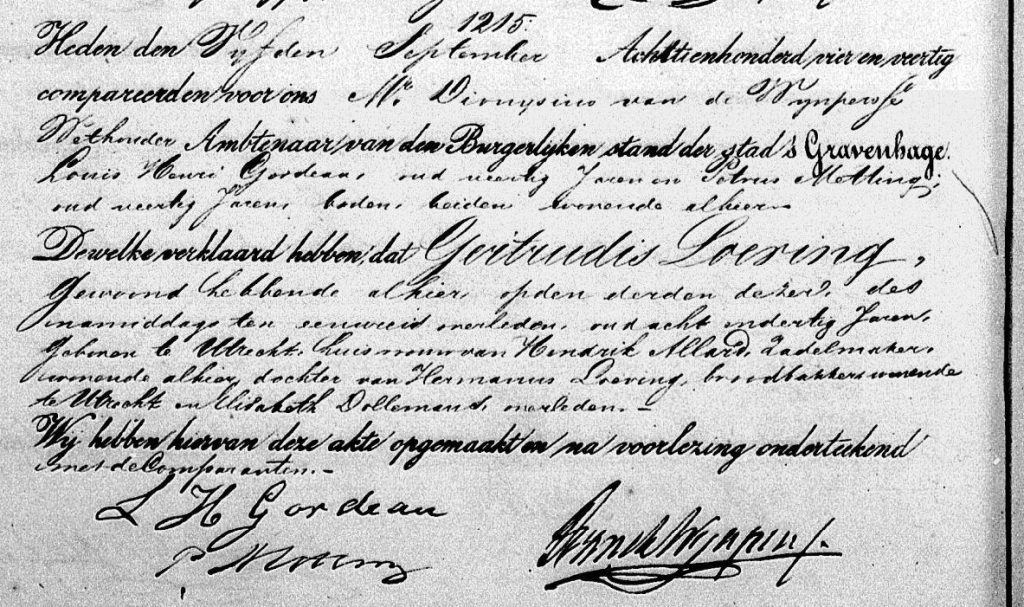 1215.
Heden den Vyfden September Achttienhonderd vier en veertig
compareerden voor ons Mr. Dionysius van de Wynpersse
Wethouder Ambtenaar van den Burgerlyken stand der stad 's Gravenhage.
Louis Henri Gordeau, oud veertig Jaren en Petrus Metting,
oud veertig Jaren, boden, beiden wonende alhier
Dewelke verklaard hebben, dat Geertrudis Loevring,
Gewoond hebbende alhier, op den derden dezer, des
namiddags ten een ure is overleden, oud acht en dertig Jaren,
Geboren te Utrecht, huisvrouw van Hendrik Allard, Zadelmaker,
wonende alhier, dochter van Hermanus Loevring, broodbakker, wonende
te Utrecht en Elisabeth Dollemans, overleden. -
Wy hebben hiervan deze akte opgemaakt en na voorlezing onderteekend
met de Comparanten. -
L H Gordeau